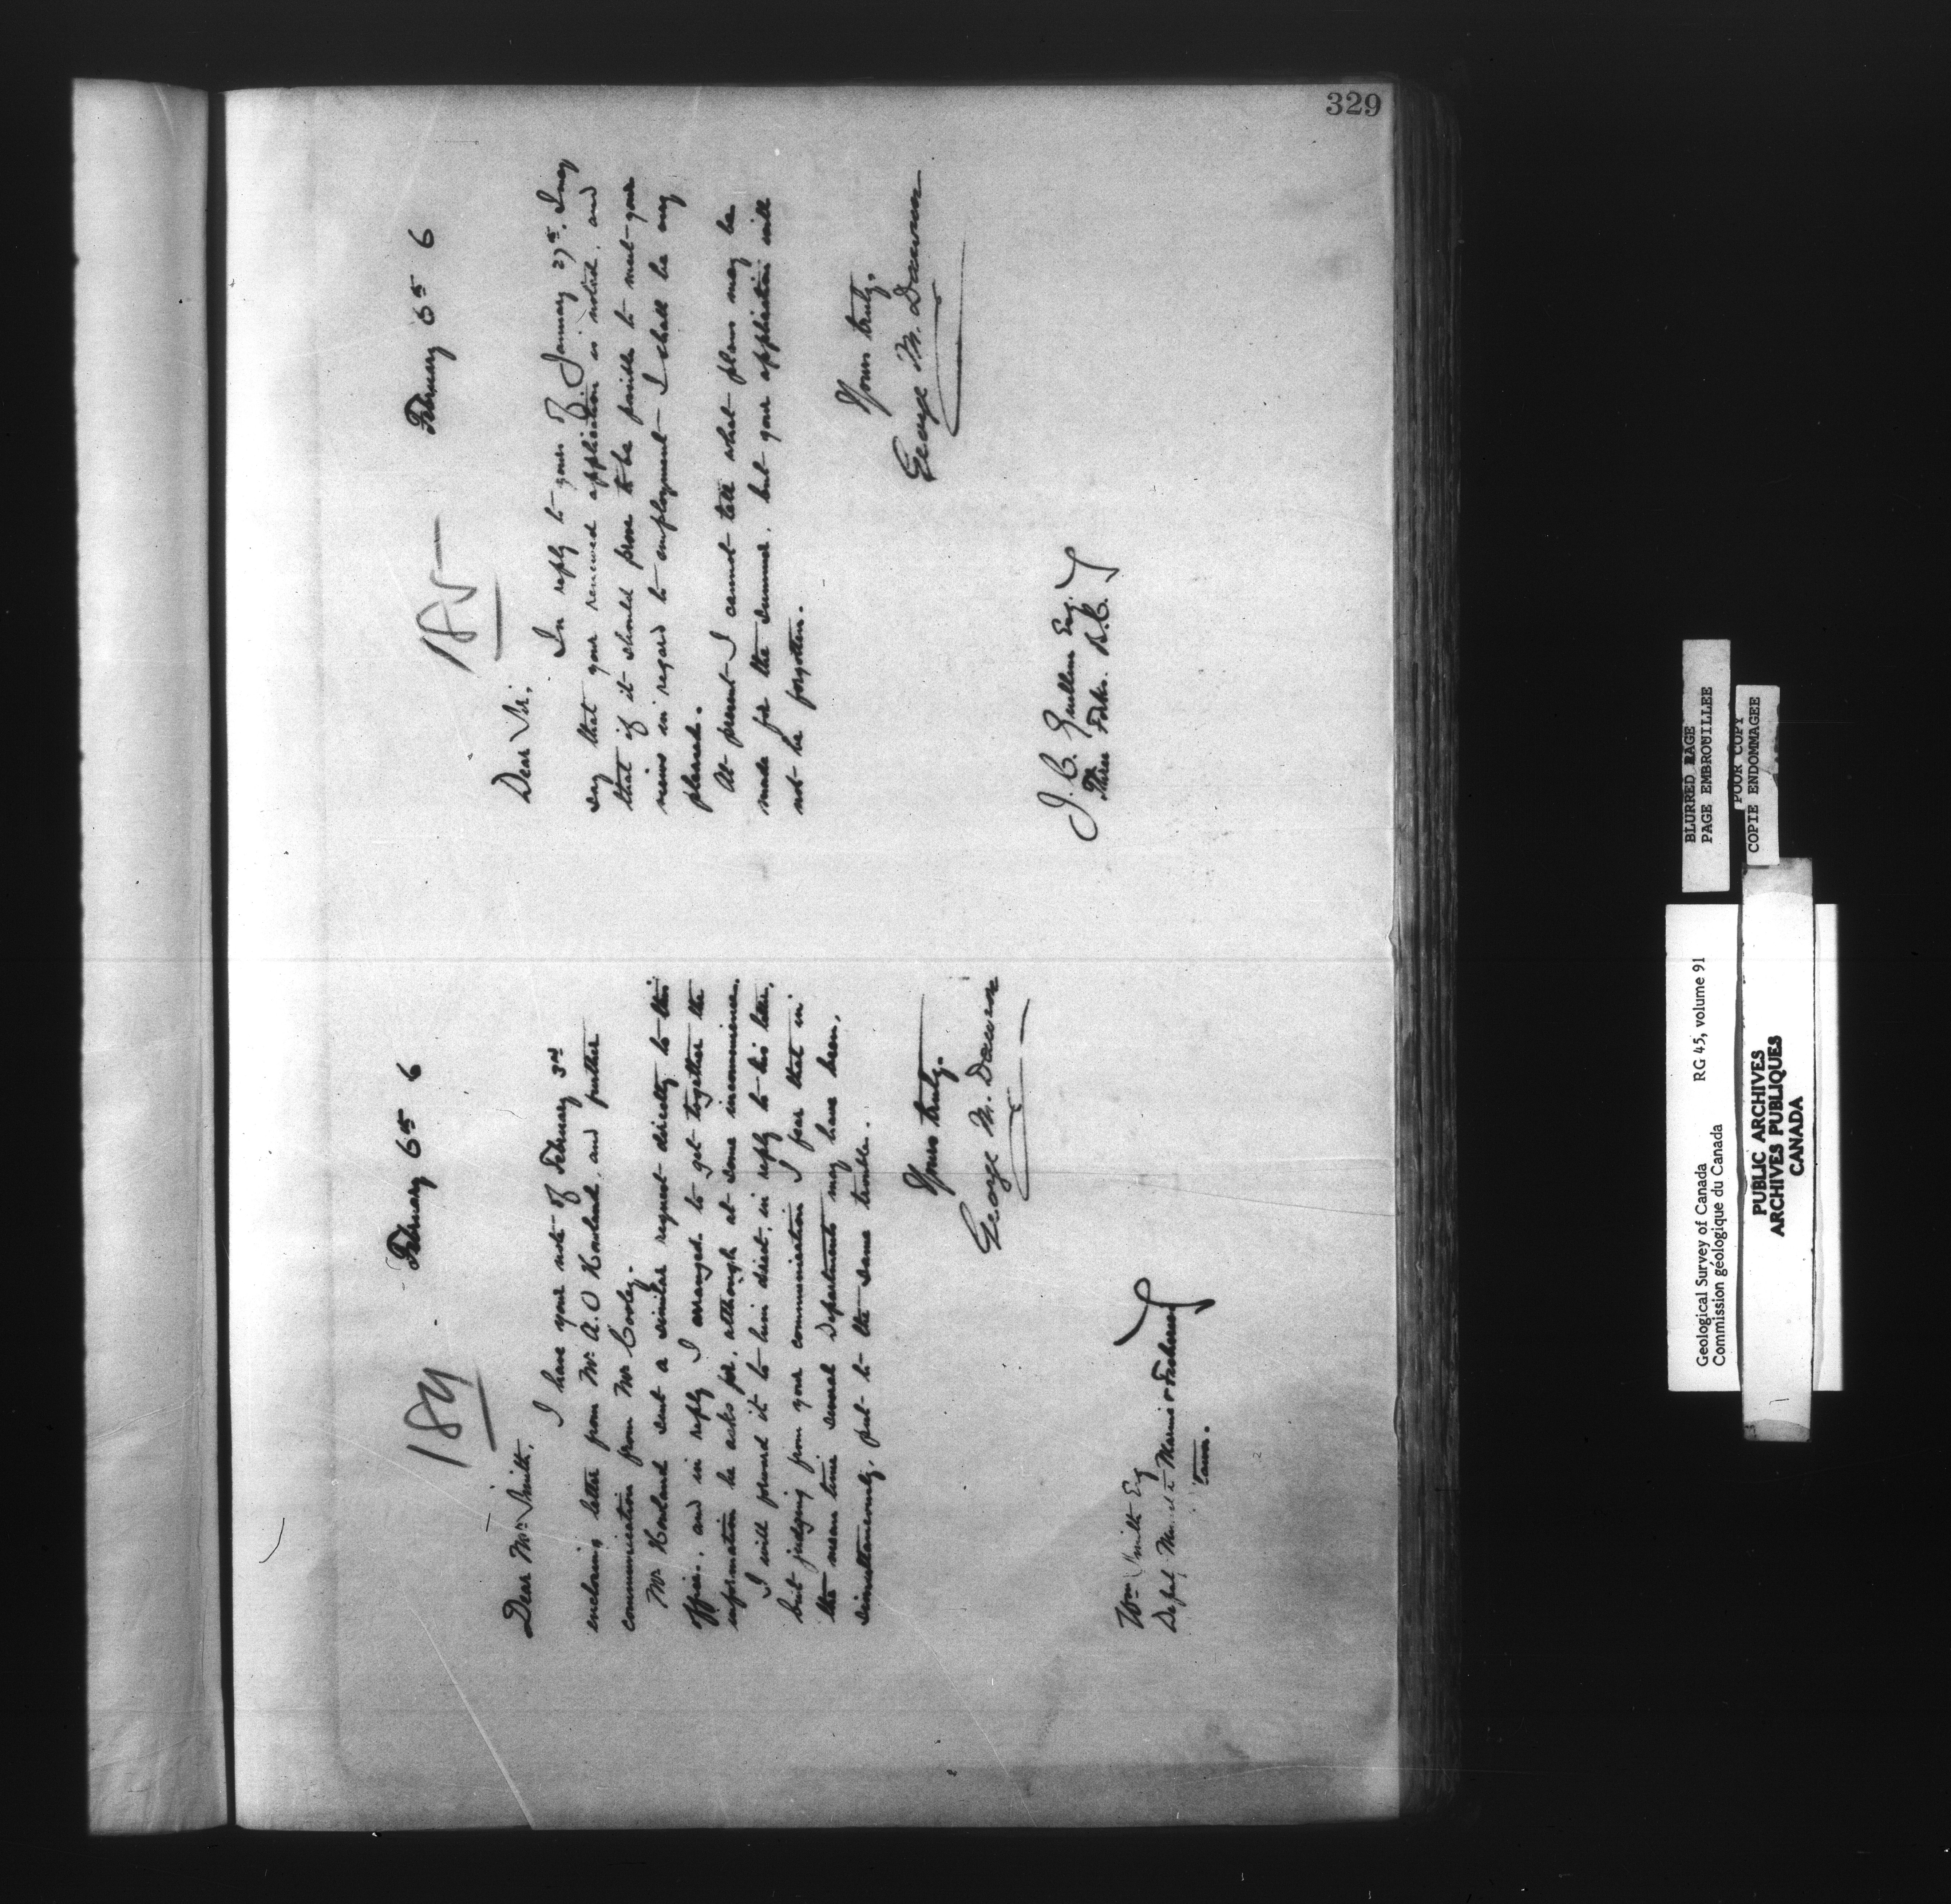 329
184
February 6th 6
Dear Mr Smith.
I have your note of February 3rd
enclosing letter from Mr A. O Howland, and further
communication from Mr Cooley.
Mr Howland sent a similar request directly to this
office, and in reply I arranged to get together the
information he asks for, although at some inconvenience.
I will forward it to him direct, in reply to his letter,
but judging from your communication I fear that in
the mean time several Departments may have been,
simultaneously, put to the same trouble.
Yours truly.
George M. Dawson
Wm Smith Esq
Deputy Minister Marine & Fisheries
Town.
185
February 6th 6
Dear Sir,
In reply to yours of January 27th. I may
say that your renewed application is noted, and
that if it should prove to be possible to meet your
views in regard to employment I shall be very
pleased.
At present I cannot tell what plans may be
made for the summer, but your application will
not be forgotten.
Yours truly.
George M. Dawson
J. C. Gwillim Esq.
Three Forks. B.C.
BLURRED PAGE
PAGE EMBROUILLEE
POOR COPY
COPIE ENDOMMAGEE
Geological Survey of Canada RG 45, volume 91
Commission géologique du Canada
PUBLIC ARCHIVES
ARCHIVES PUBLIQUES
CANADA